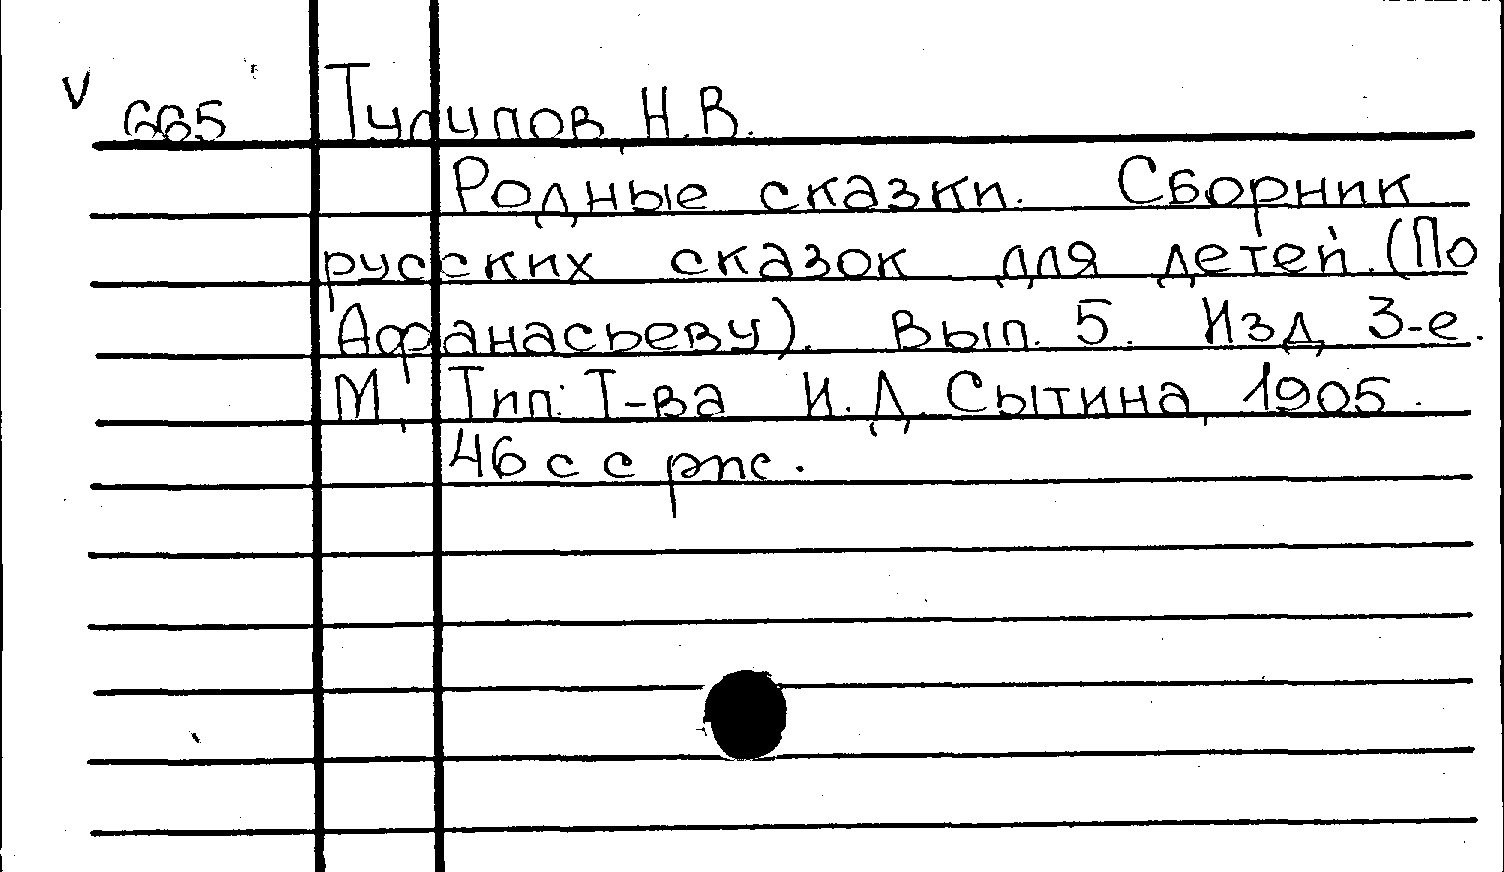 V 665 Тулупов, Н.В.
Родные сказки. Сборник
русских сказок для детей. (По
Афанасьеву). Вып. 5. Изд. 3-е.
М., Тип. Т-ва И.Д. Сытина, 1905.
46 с с рис.